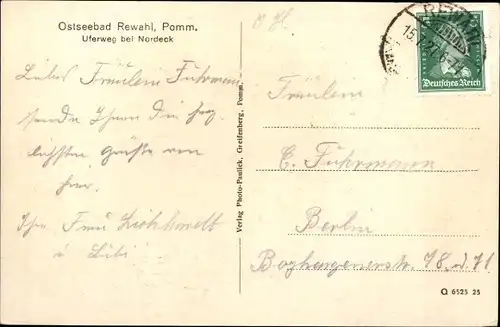 Ostseebad Rewahl, Pomm.
Uferweg bei Nordeck
Liebes Fräulein Fuhrmann
sende Ihnen die herz-
lichsten Grüße von
hier.
Ihre Frau
u Lübi
Verlag Photo-Paulick, Greifenberg, Pomm.
REWAHL
15.7.27
Deutsches Reich
Fräulein
E. Fuhrmann
Berlin
Boxhagenerstr. 78. v. 71
Q 6525 25